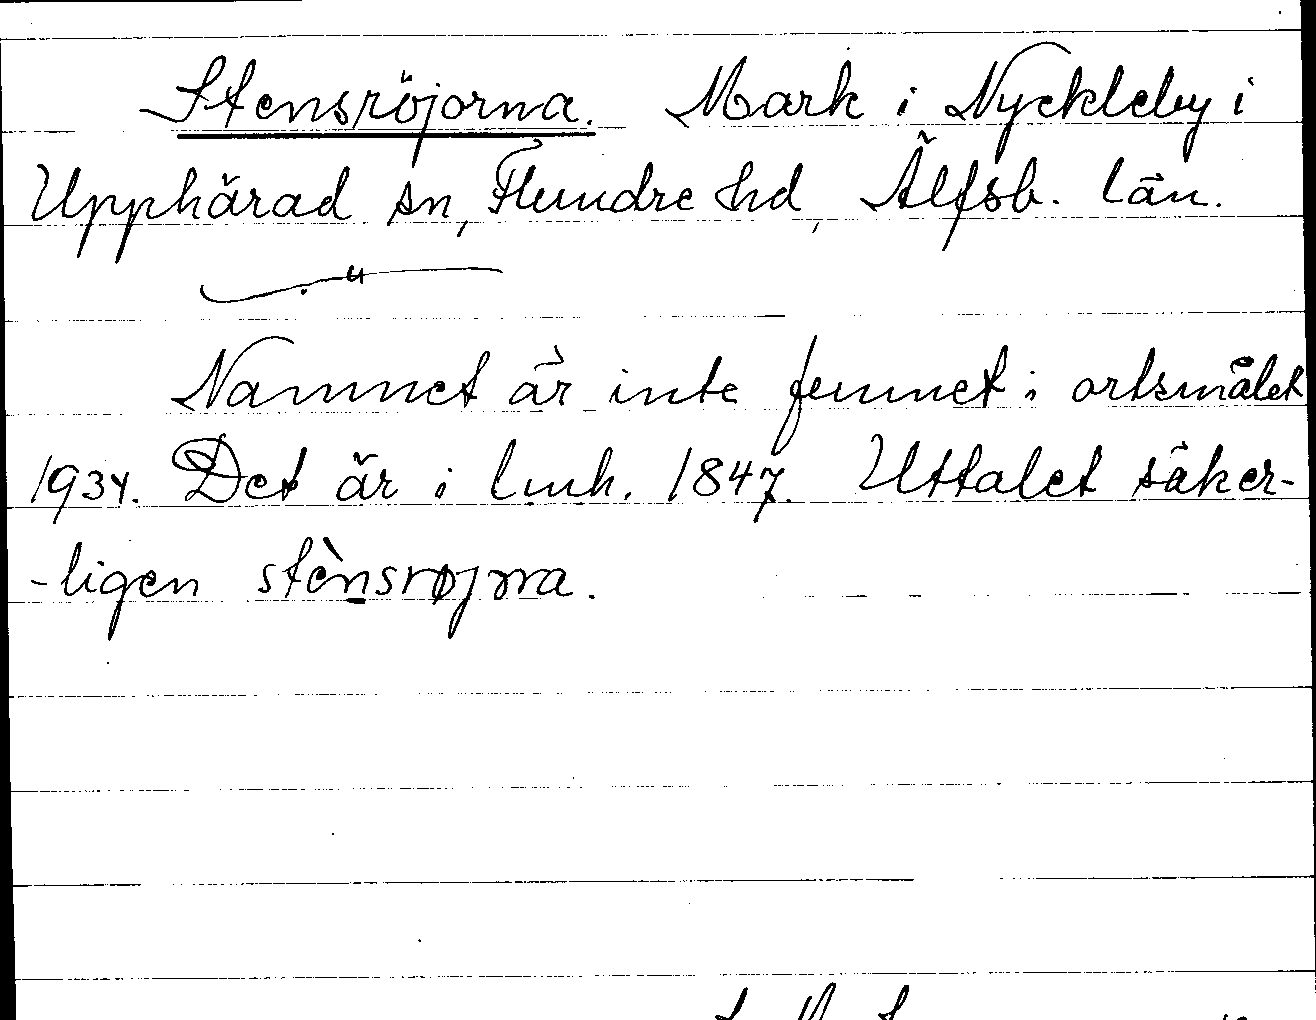 Stensröjorna. Mark i Nyckleby i
Upphärad sn, Flundre hd, Älfsb. län.
Namnet är inte funnet i ortsmålet
1934. Det är i lmh. 1847. Uttalet säker-
-ligen stènsrøjɷrna.